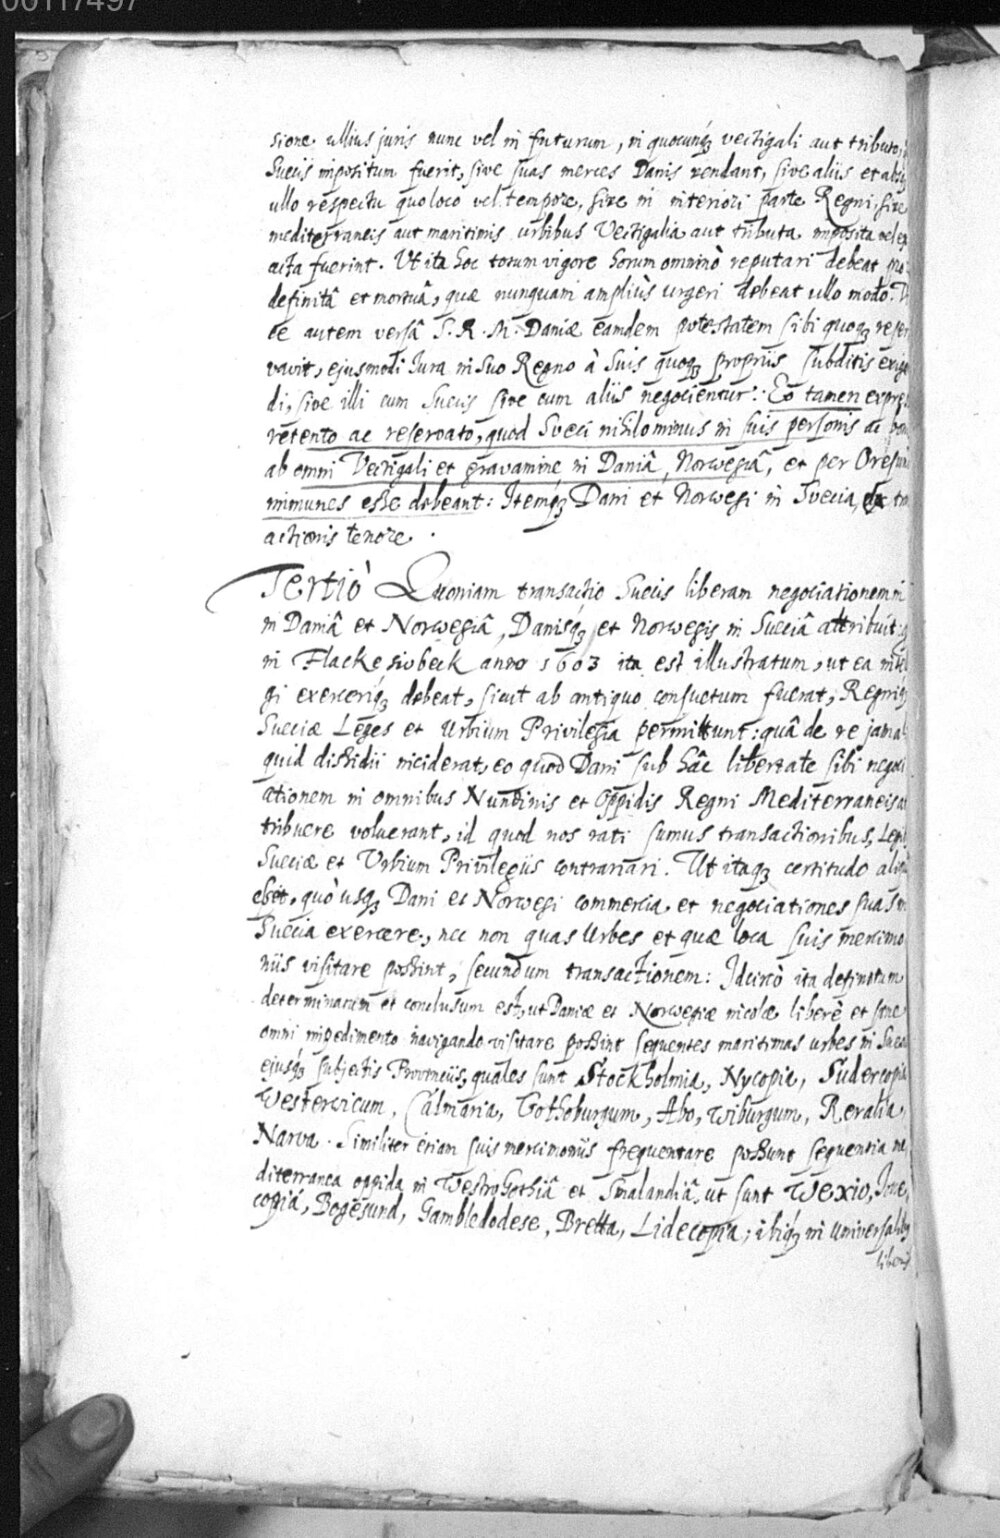 00117497
sione ullius juris nunc vel in futurum, in quocunq3 vectigali aut tributo,
Suecis impositum fuerit, sive suas merces Danis vendant, sive aliis et absq3
ullo respectu quo loco vel tempore, sive in interiori parte Regni, sive
mediterraneis aut maritimis urbibus Vectigalia aut tributa imposita vel ex
acta fuerint. Ut ita hoc totum vigore horum omninò reputari debeat pro
definitâ et mortuâ, quæ nunquam ampliùs urgeri debeat ullo modo. V
ce autem versâ S. R. M. Daniæ eamdem potestatem sibi quoq3 reser
vavit, ejusmodi Jura in suo Regno à suis quoq3 propriis subditis exige
di, sive illi cum Suecis sive cum aliis negocientur: Eo tamen expres
retento ac reservato, quod Sveci nihilominus in suis personis ac bon
ab omni Vectigali et gravamine in Daniâ, Norwegiâ, et per Oresun
immunes esse debeant: Itemq3 Dani et Norwegi in Svecia, ex tra
actionis tenore.
Tertiò Quoniam transactio Suecis liberam negociationem in
in Daniâ et Norwegiâ, Danisq3 et Norwegis in Sueciâ attribuit:
in Flackesiobeck anno 1603 ita est illustratum, ut ea inte
gi exerceriq3 debeat, sicut ab antiquo consuetum fuerat, Regniq3
Sueciæ Leges et Urbium Privilegia permittunt: quâ de re jam al
quid dissidii inciderat, eo quod Dani sub hâc libertate sibi negoci
ationem in omnibus Nundinis et Oppidis Regni Mediterraneis at
tribuere voluerant, id quod nos rati sumus transactionibus, Legib
Sueciæ et Urbium Privilegiis contrariari. Ut itaq3 certitudo aliqu
esset, quò usq3 Dani et Norwegi commercia et negociationes suas in
Suecia exercere, nec non quas Urbes et quæ loca suis mercimo
niis visitare possint, secundum transactionem: Idcircò ita definitum
determinatum et conclusum est, ut Daniæ et Norwegiæ incolæ liberè et sine
omni impedimento navigando visitare possint sequentes maritimas urbes in Suecia
ejusq3 subjectis Provinciis, quales sunt Stockholmia, Nycopia, Sudercopia
Westervicum, Calmaria, Gothoburgum, Abo, Wiburgum, Revalia,
Narva. Similiter etiam suis mercimoniis frequentare possunt sequentia me
diterranea oppida in WestroGothiâ et Smalandiâ, ut sunt Wexio, Jone
copiá, Bogesund, Gambledodese, Bretta, Lidecopia; ibiq3 in universalib
liberis